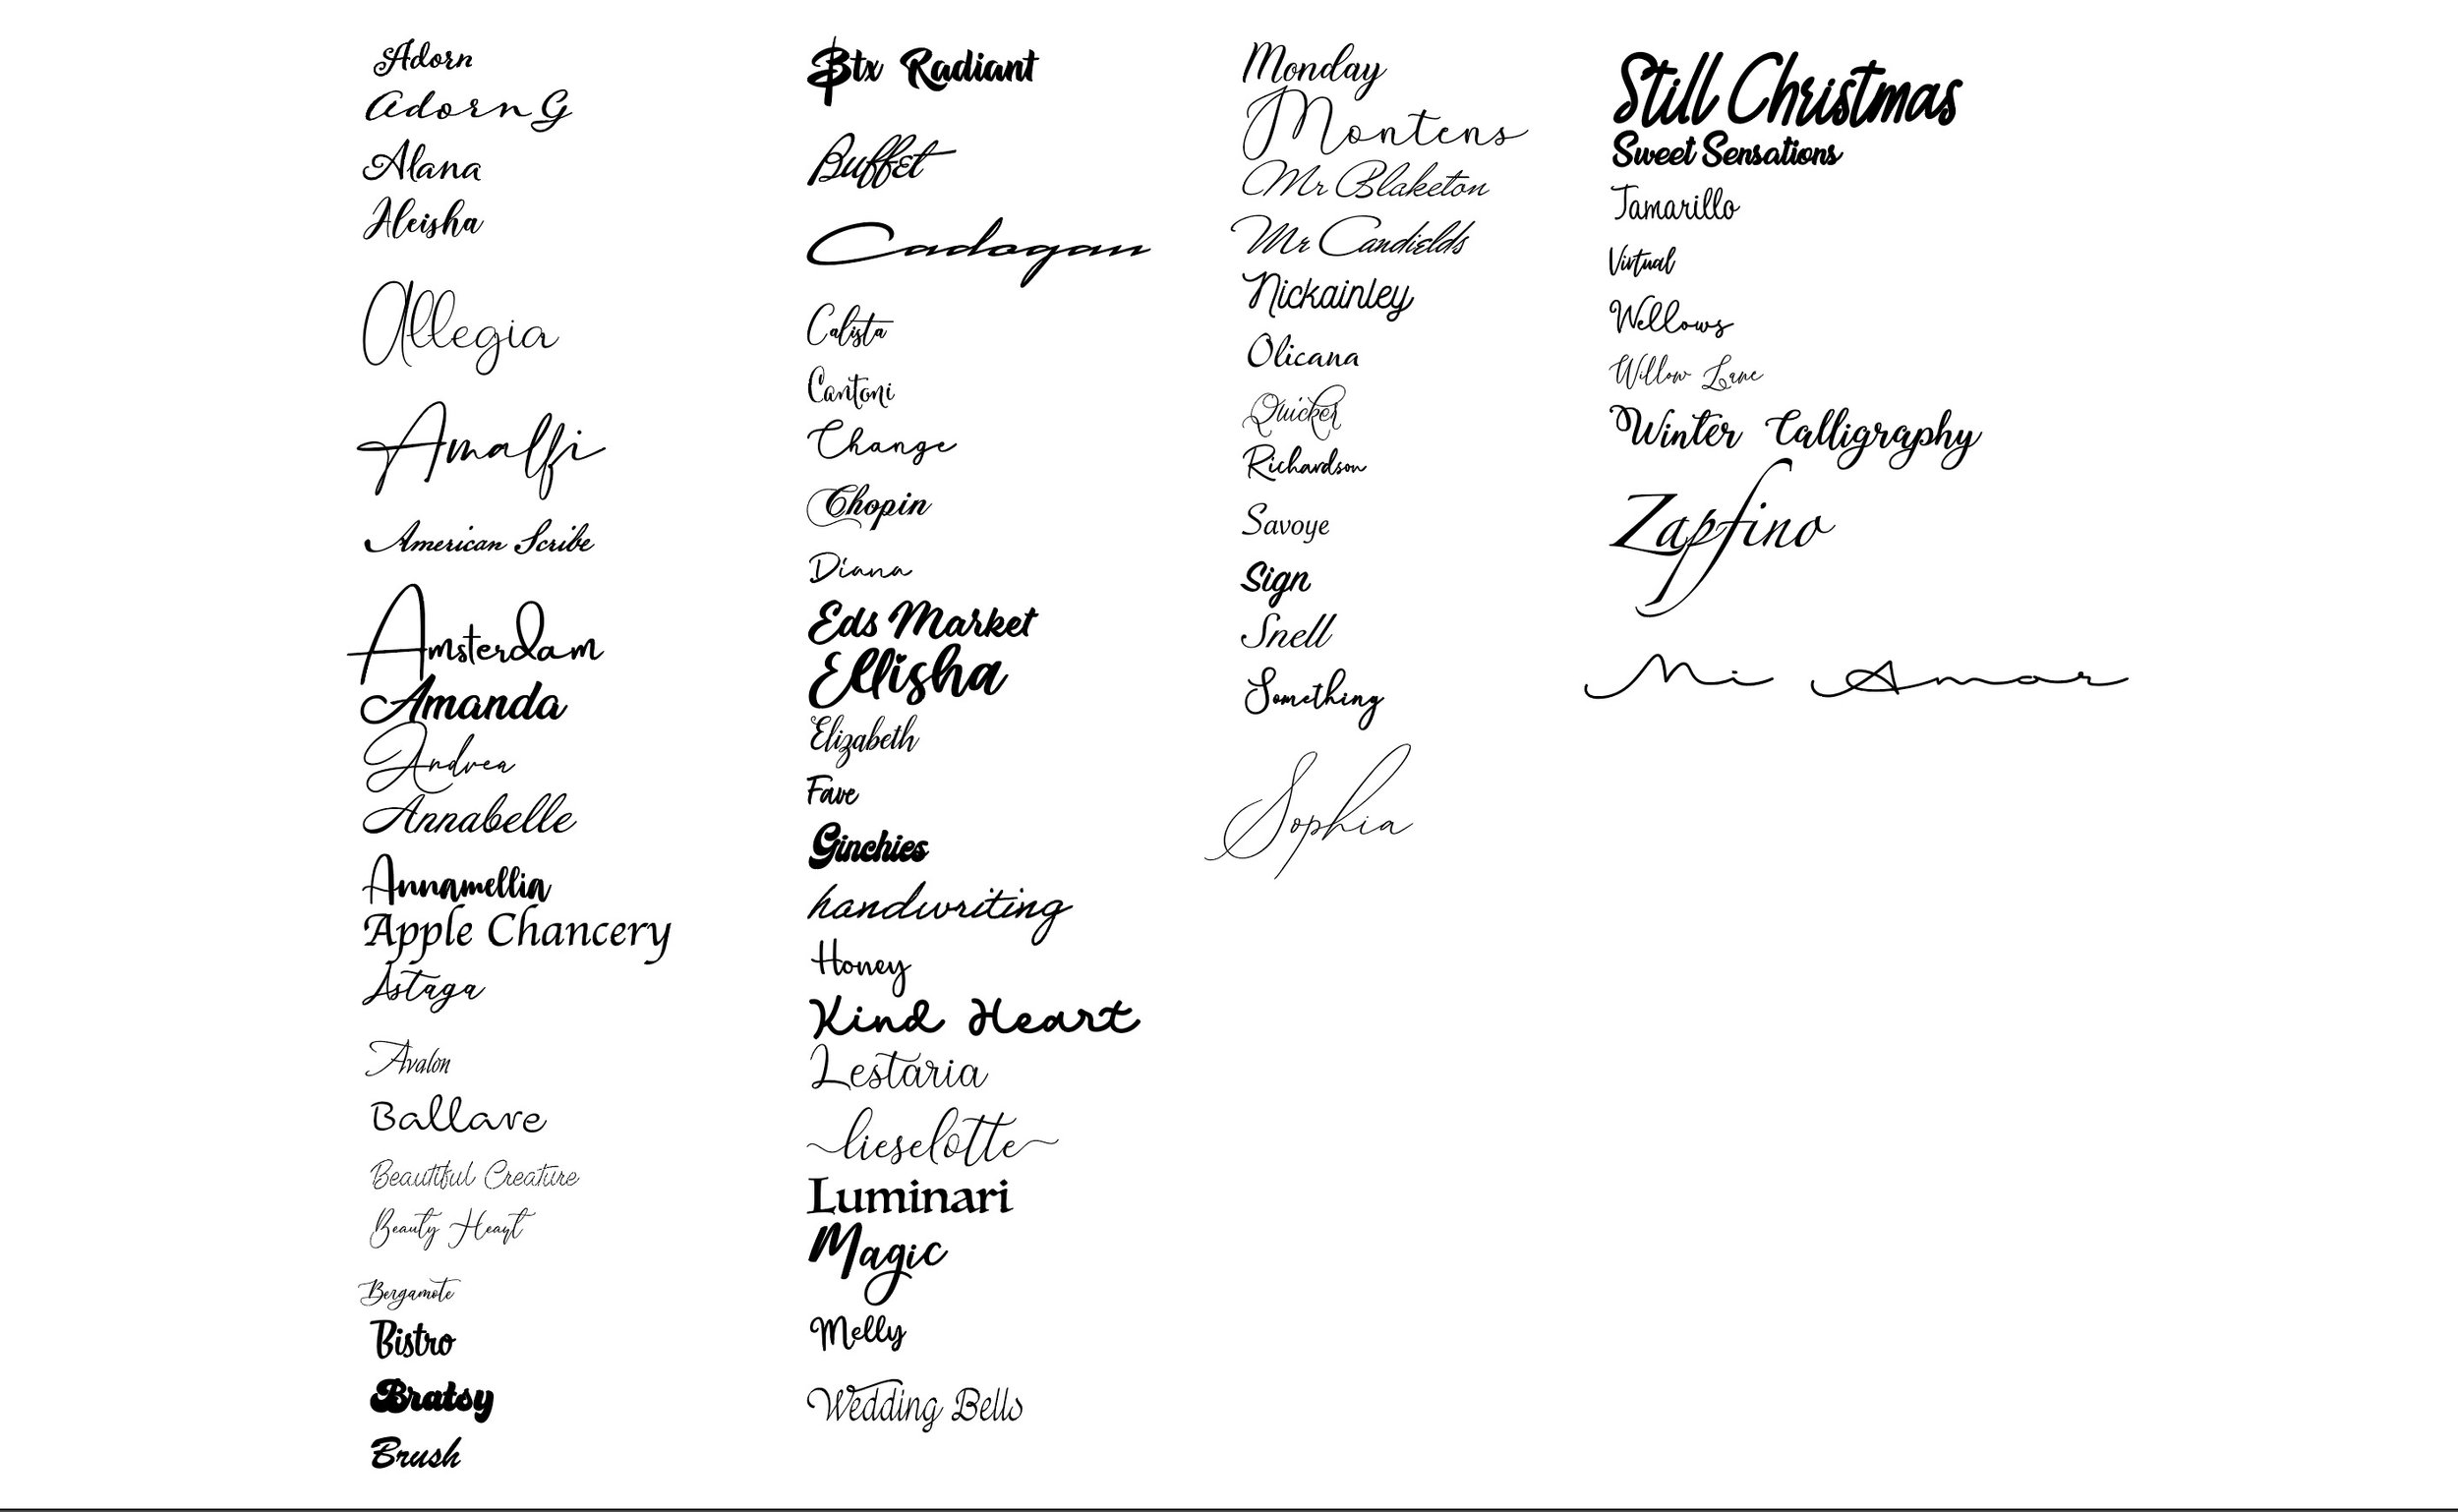 Adorn
Adorn G
Alana
Aleisha
Allegia
Amalfi
American Scribe
Amsterdam
Amanda
Andrea
Annabelle
Annamellia
Apple Chancery
Astaga
Avalon
Ballare
Beautiful Creature
Beauty Heart
Bergamote
Bistro
Bratsy
Brush
Btx Radiant
Buffet
Cadogan
Calista
Cantoni
Change
Chopin
Diana
Eds Market
Ellisha
Elizabeth
Fave
Ginchies
handwriting
Honey
Kind Heart
Lestaria
lieselotte
Luminari
Magic
Melly
Wedding Bells
Monday
Montens
Mr Blaketon
Mr Candields
Nickainley
Olicana
Quicker
Richardson
Savoye
Sign
Snell
Something
Sophia
Still Christmas
Sweet Sensations
Tamarillo
Virtual
Wellows
Willow Lane
Winter Calligraphy
Zapfino
Mi Amor